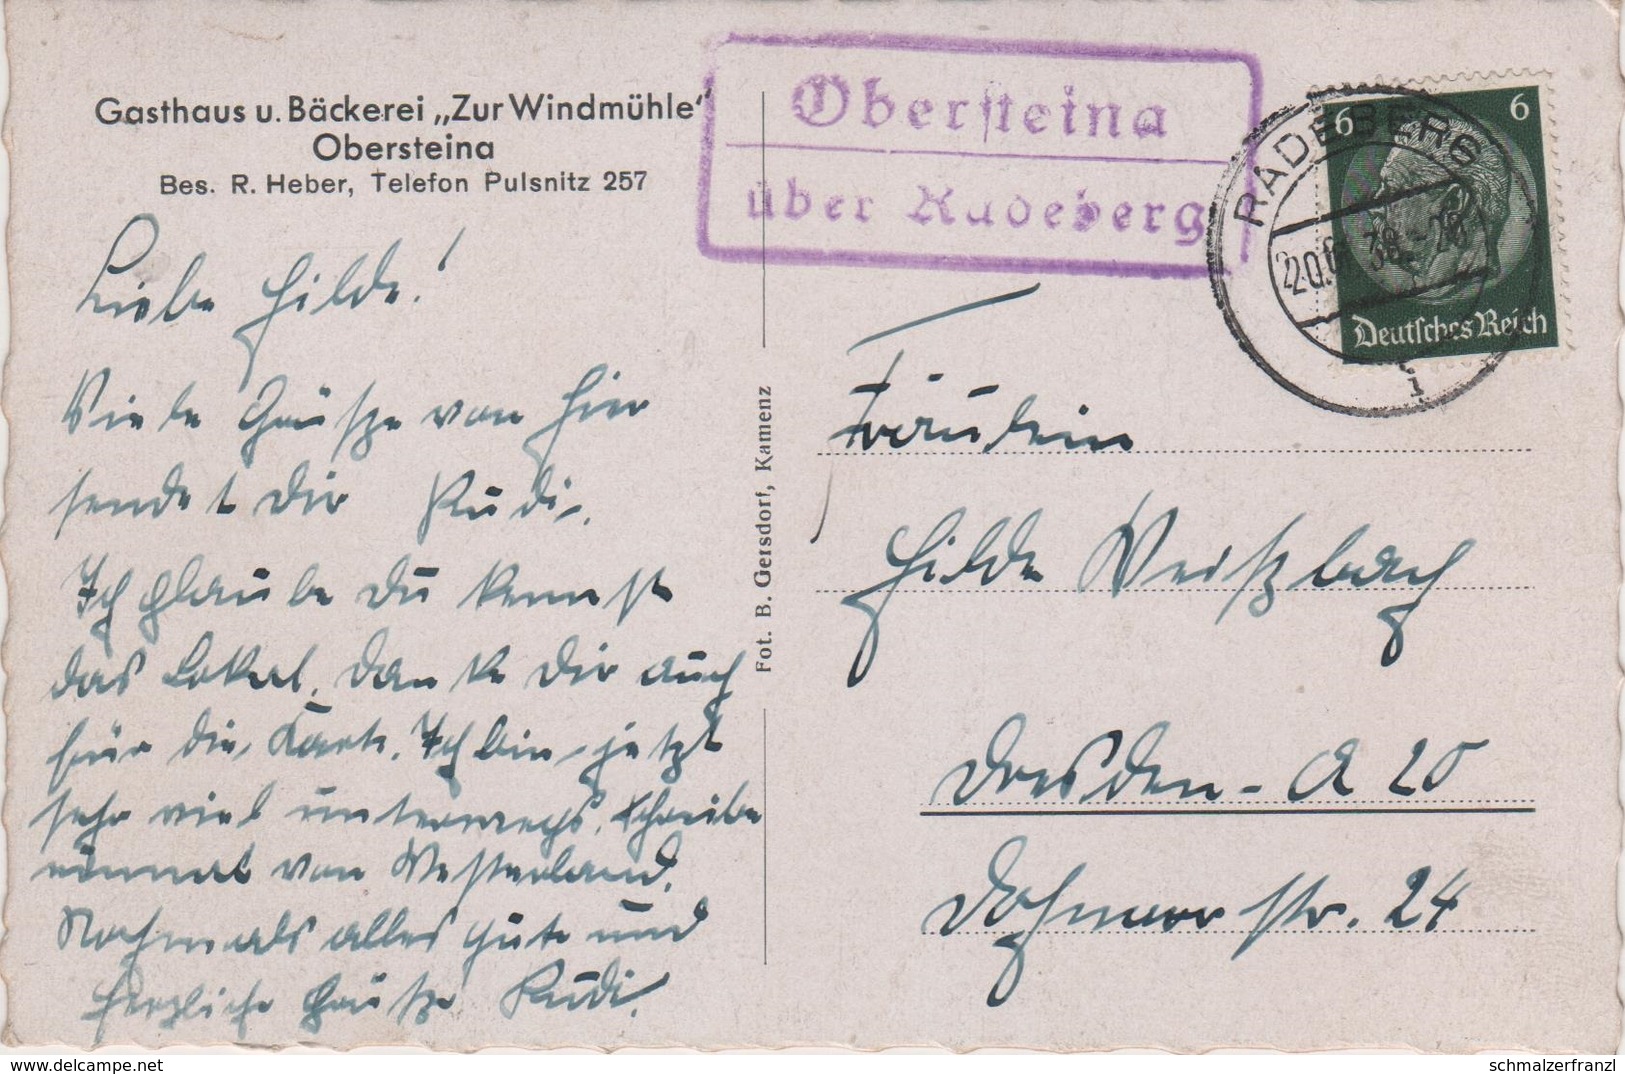 Gasthaus u. Bäckerei „Zur Windmühle"
Obersteina
Bes. R. Heber, Telefon Pulsnitz 257
Obersteina
über Radeberg
RADEBERG
6 6
Deutsches Reich
Liebe Hilde!
Viele Grüße von hier
sendet Dir Rudi.
Ich glaube Du kennst
das Lokal. Danke Dir auch
für die Karte. Ich bin jetzt
sehr viel unterwegs. Schreibe
einmal von Westerland.
Nochmals alles gute und
herzliche Grüße Rudi.
Fot. B. Gersdorf, Kamenz
Fräulein
Hilde Weißbach
Dresden-A 20
Dohnaer str. 24
www.delcampe.net
schmalzerfranzl